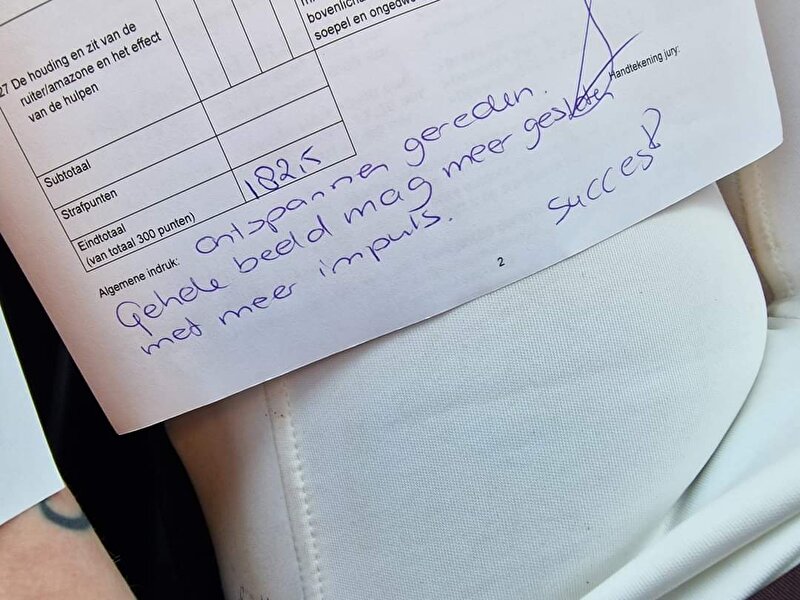 bovenlich
soepel en ongedwo
27 De houding en zit van de
ruiter/amazone en het effect
van de hulpen
Subtotaal
Strafpunten
Eindtotaal
(van totaal 300 punten)
182,5
Handtekening jury:
Algemene indruk: ontspannen gereden.
Gehele beeld mag meer gesloten
met meer impuls.
succes!
2